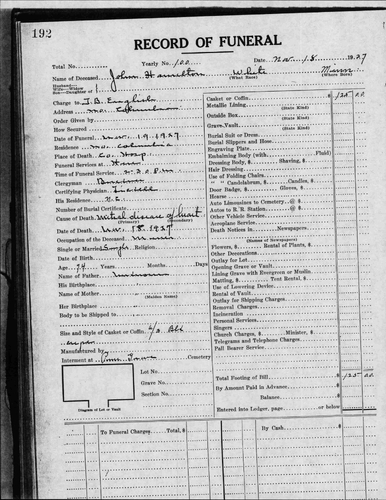 192
RECORD OF FUNERAL
Total No. Yearly No. 100 Date Nov. 18 1927
Name of Deceased John Hamilton White
(What Race) (Where Born)
Husband—
Wife—Widow
Son—Daughter of
Charge to J.B. English
Address Mo. Columbia
Order Given by
How Secured
Date of Funeral Nov. 19 1927
Residence Mo. Columbia
Place of Death Co Hosp
Services at
Time of Funeral Service 2:30 P.M
Clergyman
Certifying Physician
His Residence
Number of Burial Certificate
Cause of Death Mitral disease of heart
Date of Death Nov. 18 1927
Occupation of the Deceased
Single or Married Single Religion
Date of Birth
Age 74 Years Months Days
Name of Father Unknown
His Birthplace
Name of Mother
(Maiden Name)
Her Birthplace
Body to be Shipped to
Size and Style of Casket or Coffin 6/3 Blk
Manufactured by
Interment at Cemetery
Lot No.
Grave No.
Section No.
Diagram of Lot or Vault
Casket or Coffin 125 00
Metallic Lining
(State Kind)
Outside Box
(State Kind)
Grave Vault
(State Kind)
Burial Suit or Dress
Burial Slippers and Hose
Engraving Plate
Embalming Body (with Fluid)
Dressing Body, $ Shaving, $
Hair Dressing
Use of Folding Chairs
" " Candelabrum, $ Candles, $
Door Badge, $ Gloves, $
Hearse
Auto Limousines to Cemetery @ $
Autos to R. R. Station @ $
Other Vehicle Service
Aeroplane Service
Death Notices in Newspapers
(Names of Newspapers)
Flowers, $ Rental of Plants, $
Other Decorations
Outlay for Lot
Opening Grave or Vault
Lining Grave with Evergreen or Muslin
Matting, $ Tent Rental, $
Use of Lowering Device
Rental of Vault
Outlay for Shipping Charges
Removal Charges
Incineration
Personal Services
Singers
Church Charges, $ Minister, $
Telegrams and Telephone Charges
Pall Bearer Service
Total Footing of Bill 125 00
By Amount Paid in Advance
Balance
Entered into Ledger, page or below
To Funeral Charges Total, $
By Cash $